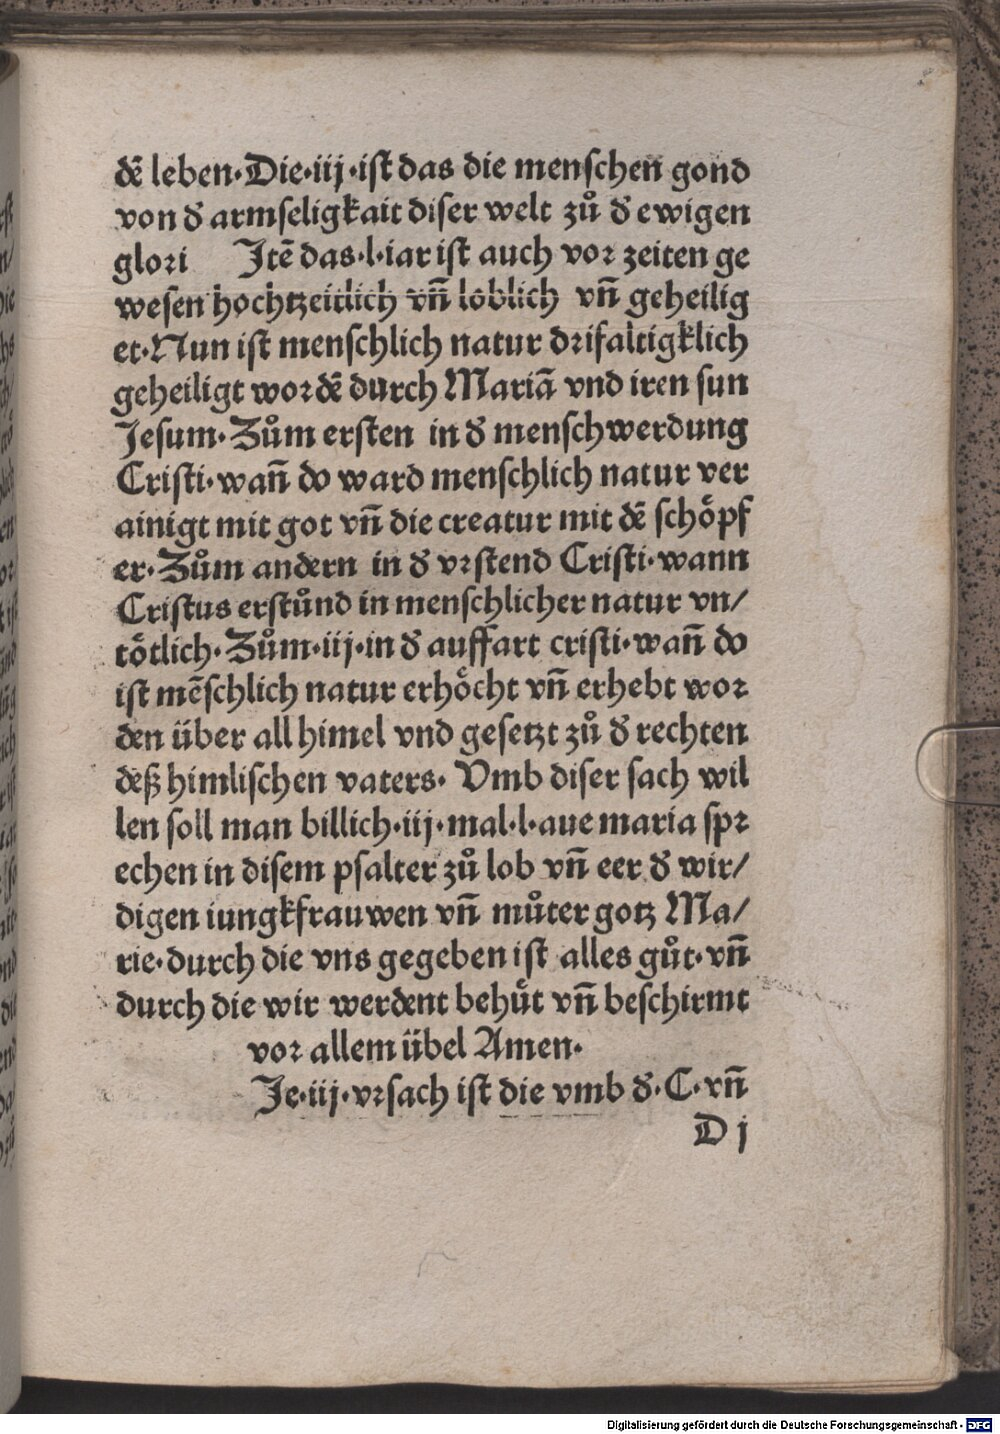 dē leben·Die·iij·ist das die menschen gond
von đ armseligkait diser welt zů đ ewigen
glori Jtē das·l·iar ist auch vor zeiten ge
wesen hochtzeitlich vn̄ loblich vn̄ geheilig
et·Nun ist menschlich natur drifaltigklich
geheiligt wordē durch Mariā vnd iren sun
Jesum·Zům ersten in đ menschwerdung
Cristi·wan̄ do ward menschlich natur ver
ainigt mit got vn̄ die creatur mit dē schöpf
er·Zům andern in đ vrstend Cristi·wann
Cristus erstůnd in menschlicher natur vn/
tötlich·Zům·iij·in đ auffart cristi·wan̄ do
ist mēschlich natur erhöcht vn̄ erhebt wor
den über all himel vnd gesetzt zů đ rechten
deß himlischen vaters· Vmb diser sach wil
len soll man billich·iij·mal·l·aue maria spr
echen in disem psalter zů lob vn̄ eer đ wir/
digen iungkfrauwen vn̄ můter gotz Ma/
rie·durch die vns gegeben ist alles gůt·vn̄
durch die wir werdent behüt vn̄ beschirmt
vor allem übel Amen·
Je·iij·vrsach ist die vmb đ·C·vn̄
D j
Digitalisierung gefördert durch die Deutsche Forschungsgemeinschaft - DFG